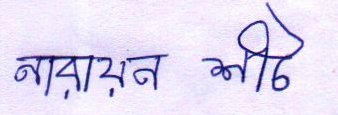 নারায়ন শীট